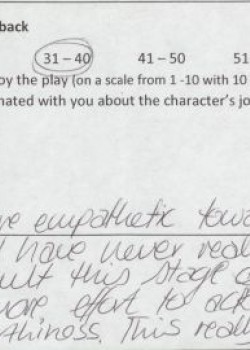 back
31 – 40 41 – 50 51
oy the play (on a scale from 1 -10 with 10
nated with you about the character's jo
re empathetic towa
I have never real
ult this stage o
more effort to ack
thiness. This reall